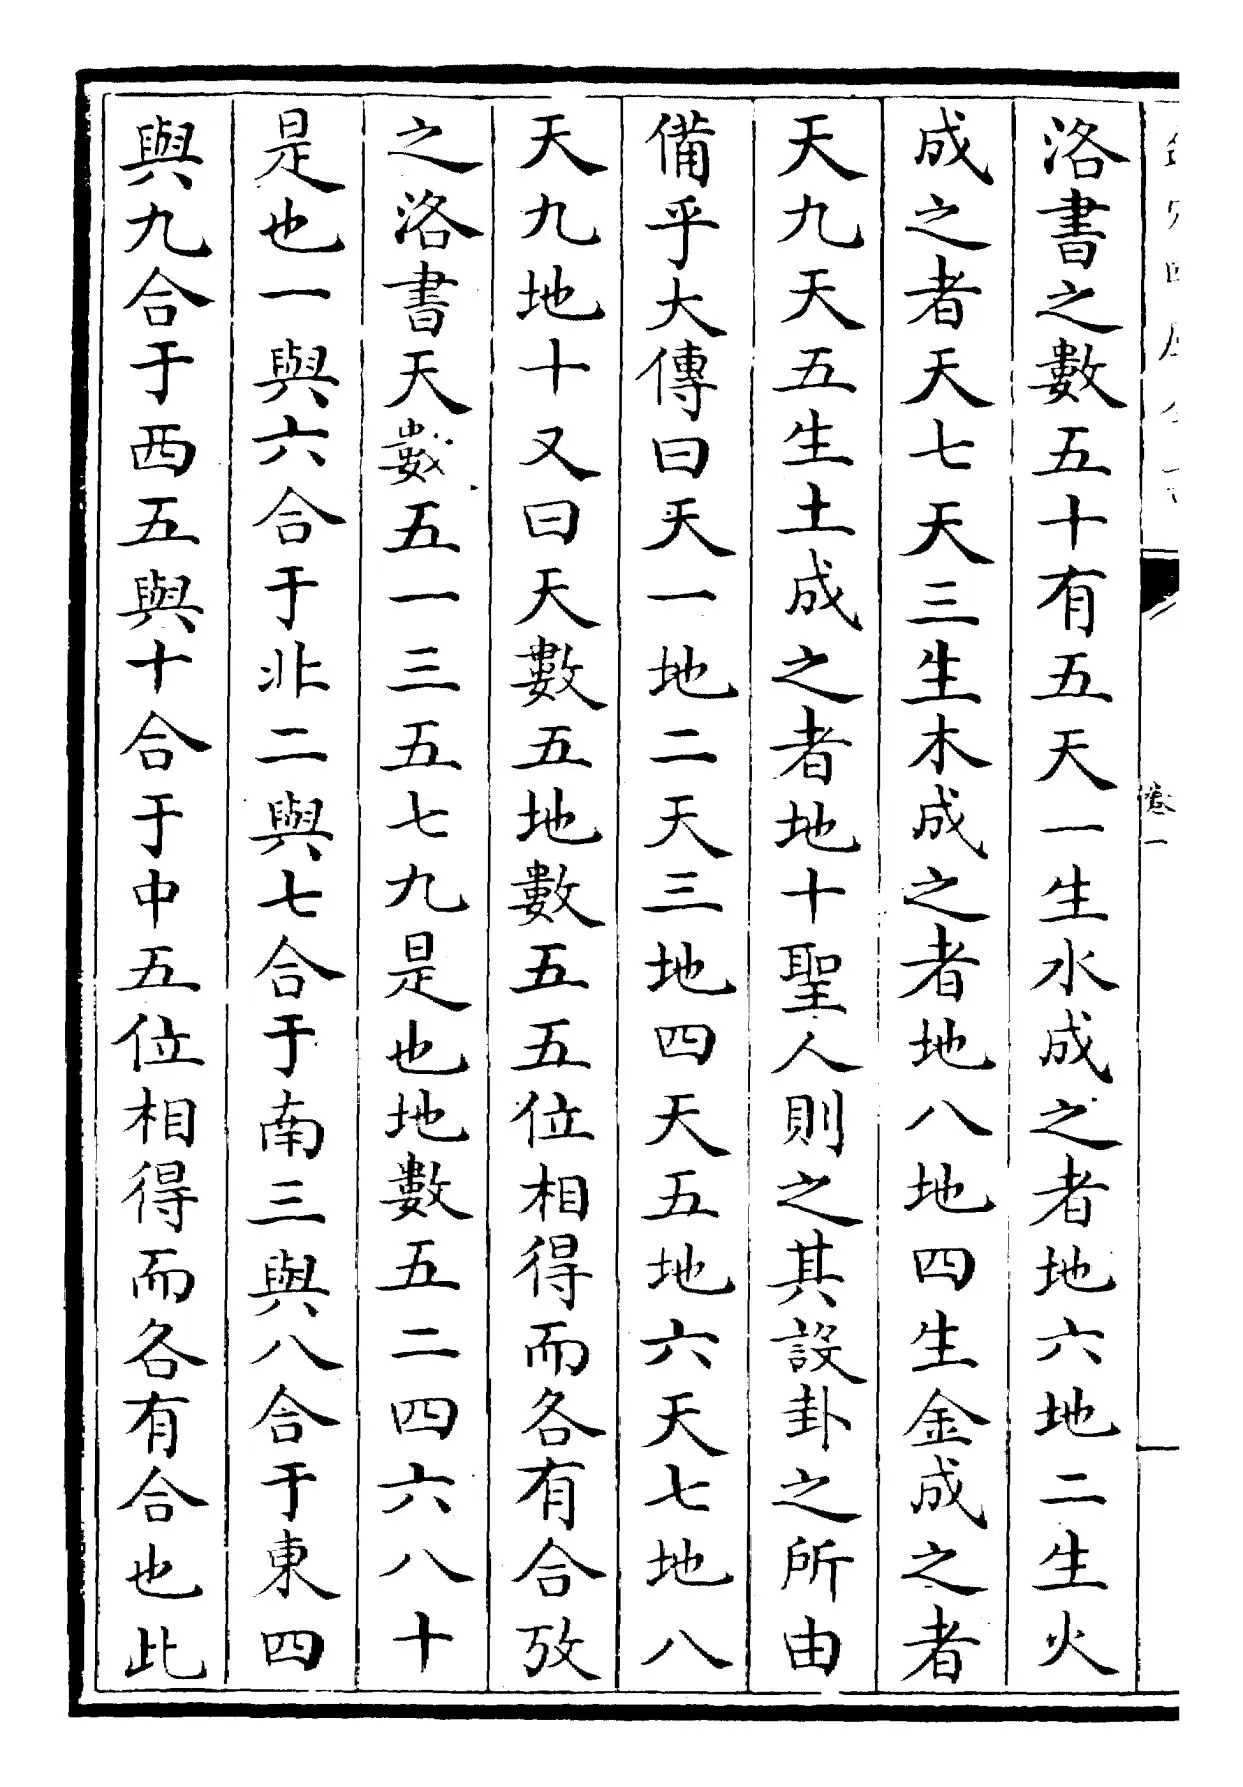 卷一
洛書之數五十有五天一生水成之者地六地二生火
成之者天七天三生木成之者地八地四生金成之者
天九天五生土成之者地十聖人則之其設卦之所由
備乎大傳曰天一地二天三地四天五地六天七地八
天九地十又曰天數五地數五五位相得而各有合攷
之洛書天數五一三五七九是也地數五二四六八十
是也一與六合于北二與七合于南三與八合于東四
與九合于西五與十合于中五位相得而各有合也此